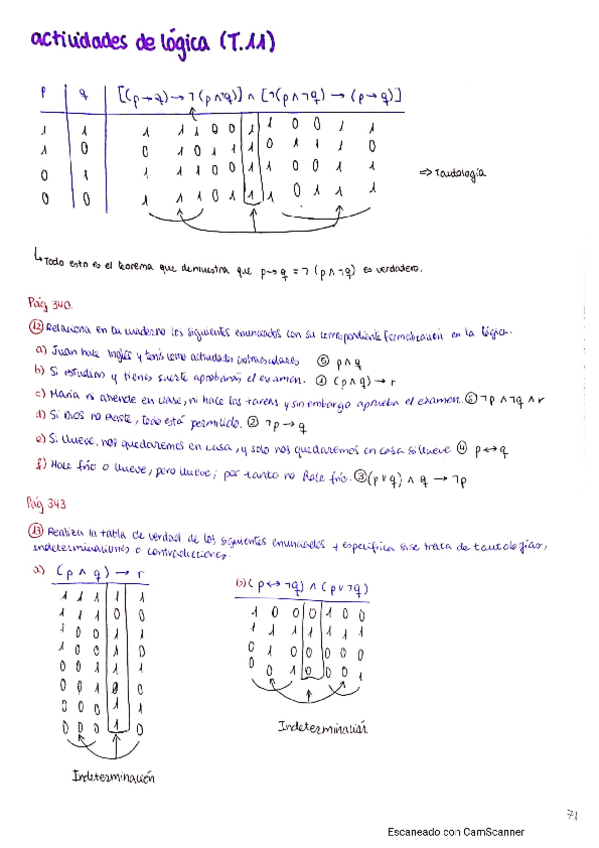 actividades de lógica (T.11)
p q [(p→q) → ¬(p∧¬q)] ∧ [¬(p∧¬q) → (p→q)]
1 1 1 1 1 0 0 1 1 0 0 1 1
1 0 0 1 0 1 1 1 0 1 1 1 0
0 1 1 1 1 0 0 1 1 0 0 1 1 ⇒ Tautología
0 0 1 1 1 0 1 1 1 0 1 1 1
↳ Todo esto es el teorema que demuestra que p→q = ¬(p∧¬q) es verdadero.
Pág 340.
12 Relaciona en tu cuaderno los siguientes enunciados con su correspondiente formalización en la lógica.
a) Juan hace inglés y tenis como actividades extraescolares ⑥ p∧q
b) Si estudias y tienes suerte aprobarás el examen. ① (p∧q) → r
c) María ni atiende en clase, ni hace las tareas y sin embargo aprueba el examen. ⑤ ¬p ∧ ¬q ∧ r
d) Si Dios no existe, todo está permitido. ② ¬p → q
e) Si llueve, nos quedaremos en casa, y solo nos quedaremos en casa si llueve ④ p ↔ q
f) Hace frío o llueve, pero llueve; por tanto no hace frío. ③ (p∨q) ∧ q → ¬p
Pág 343
13 Realiza la tabla de verdad de los siguientes enunciados y especifica si se trata de tautologías,
indeterminaciones o contradicciones.
a) (p ∧ q) → r
1 1 1 1 1
1 1 1 0 0
1 0 0 1 1
1 0 0 1 0
0 0 1 1 1
0 0 1 1 0
0 0 0 1 1
0 0 0 1 0
Indeterminación
b) (p ↔ ¬q) ∧ (p∨¬q)
1 0 0 0 1 0 0
1 1 1 1 1 1 1
0 1 0 0 0 0 0
0 0 1 0 0 0 1
Indeterminación
71
Escaneado con CamScanner